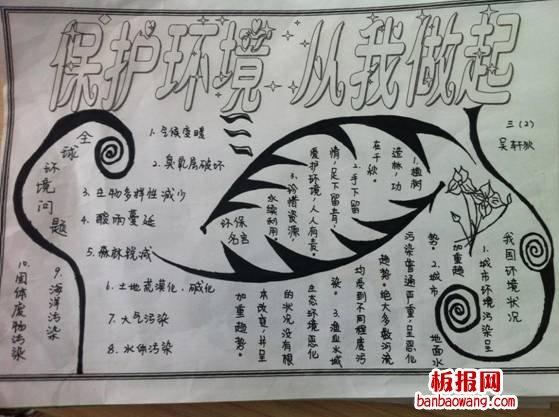 保护环境 从我做起
三(2)
吴轩狄
全球环境问题
1、气候变暖
2、臭氧层破坏
3、生物多样性减少
4、酸雨蔓延
5、森林锐减
6、土地荒漠化、碱化
7、大气污染
8、水体污染
9、海洋污染
10、固体废物污染
环保名言
1、植树
造林,功
在千秋。
2、手下留
情,足下留青
爱护环境,人人有责。
3、珍惜资源,
永续利用。
我国环境状况
1、城市环境污染呈
加重趋
势。2、城市
地面水
污染普遍严重,呈恶化
趋势。绝大多数河流
均受到不同程度污
染。3、渔业水域
生态环境恶化
的状况没有根
本改变,并呈
加重趋势。
板报网
banbaowang.com